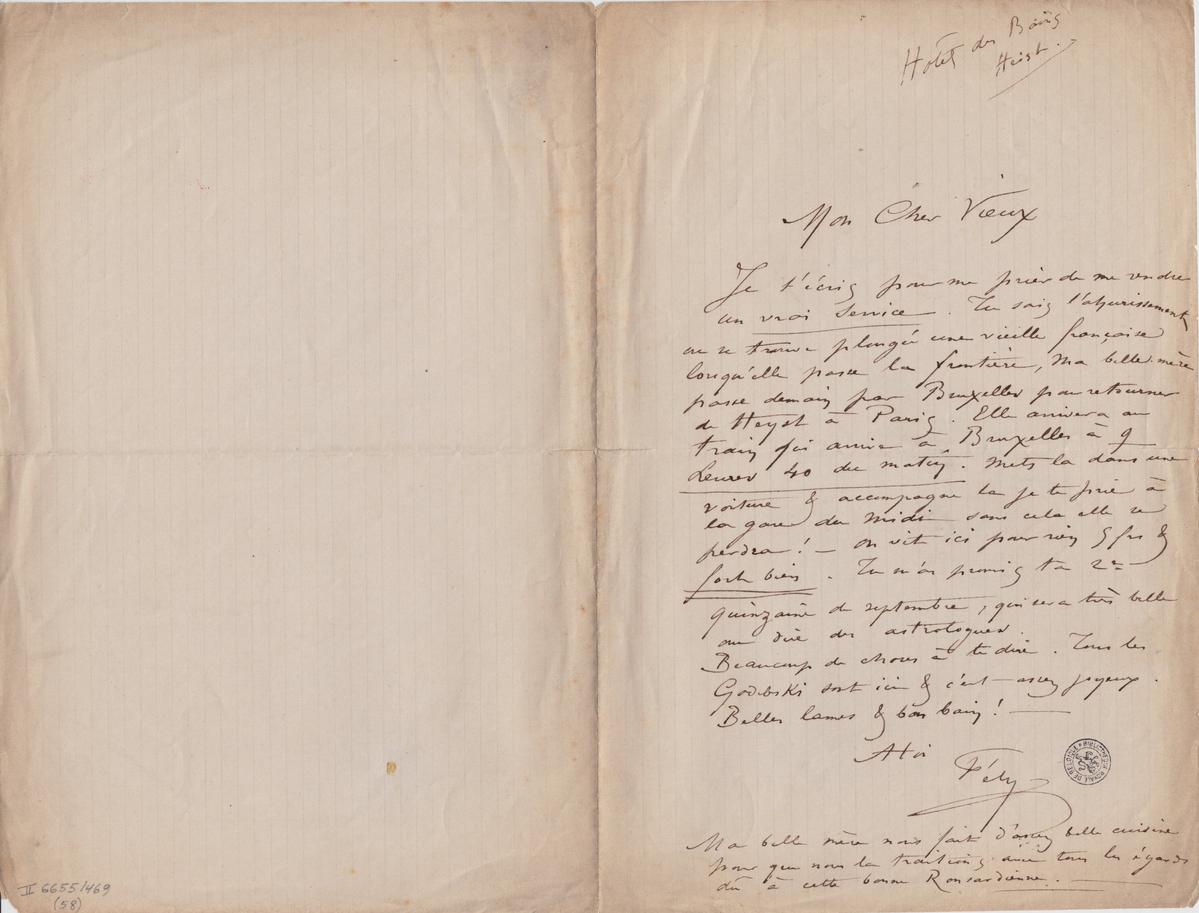 Hôtel des Bains
Heist.
Mon Cher Vieux
Je t'écris pour me prier de me rendre
un vrai service. Tu sais l'ahurissement
ou se trouve plongée une vieille française
lorsqu'elle passe la frontière, Ma belle-mère
passe demain par Bruxelles pour retourner
de Heyst à Paris. Elle arrivera au
train qui arrive à Bruxelles à 9
heures 40 du matin. Mets la dans une
voiture & accompagne la je te prie à
la gare du Midi sans cela elle se
perdra! – On vit ici pour rien 5 frs &
fort bien. Tu m'as promis ta 2e
quinzaine de septembre, qui sera très belle
au dire des astrologues.
Beaucoup de choses à te dire. Tous les
Godebski sont ici & c'est assez joyeux.
Belles lames & bon bain! —
A toi
Fély
Ma belle mère nous fait d'assez belle cuisine
pour que nous la traitions avec tous les égards
dû à cette bonne Ronsardienne. —
BIBLIOTHÈQUE ROYALE DE BELGIQUE
II 6655/469
(58)